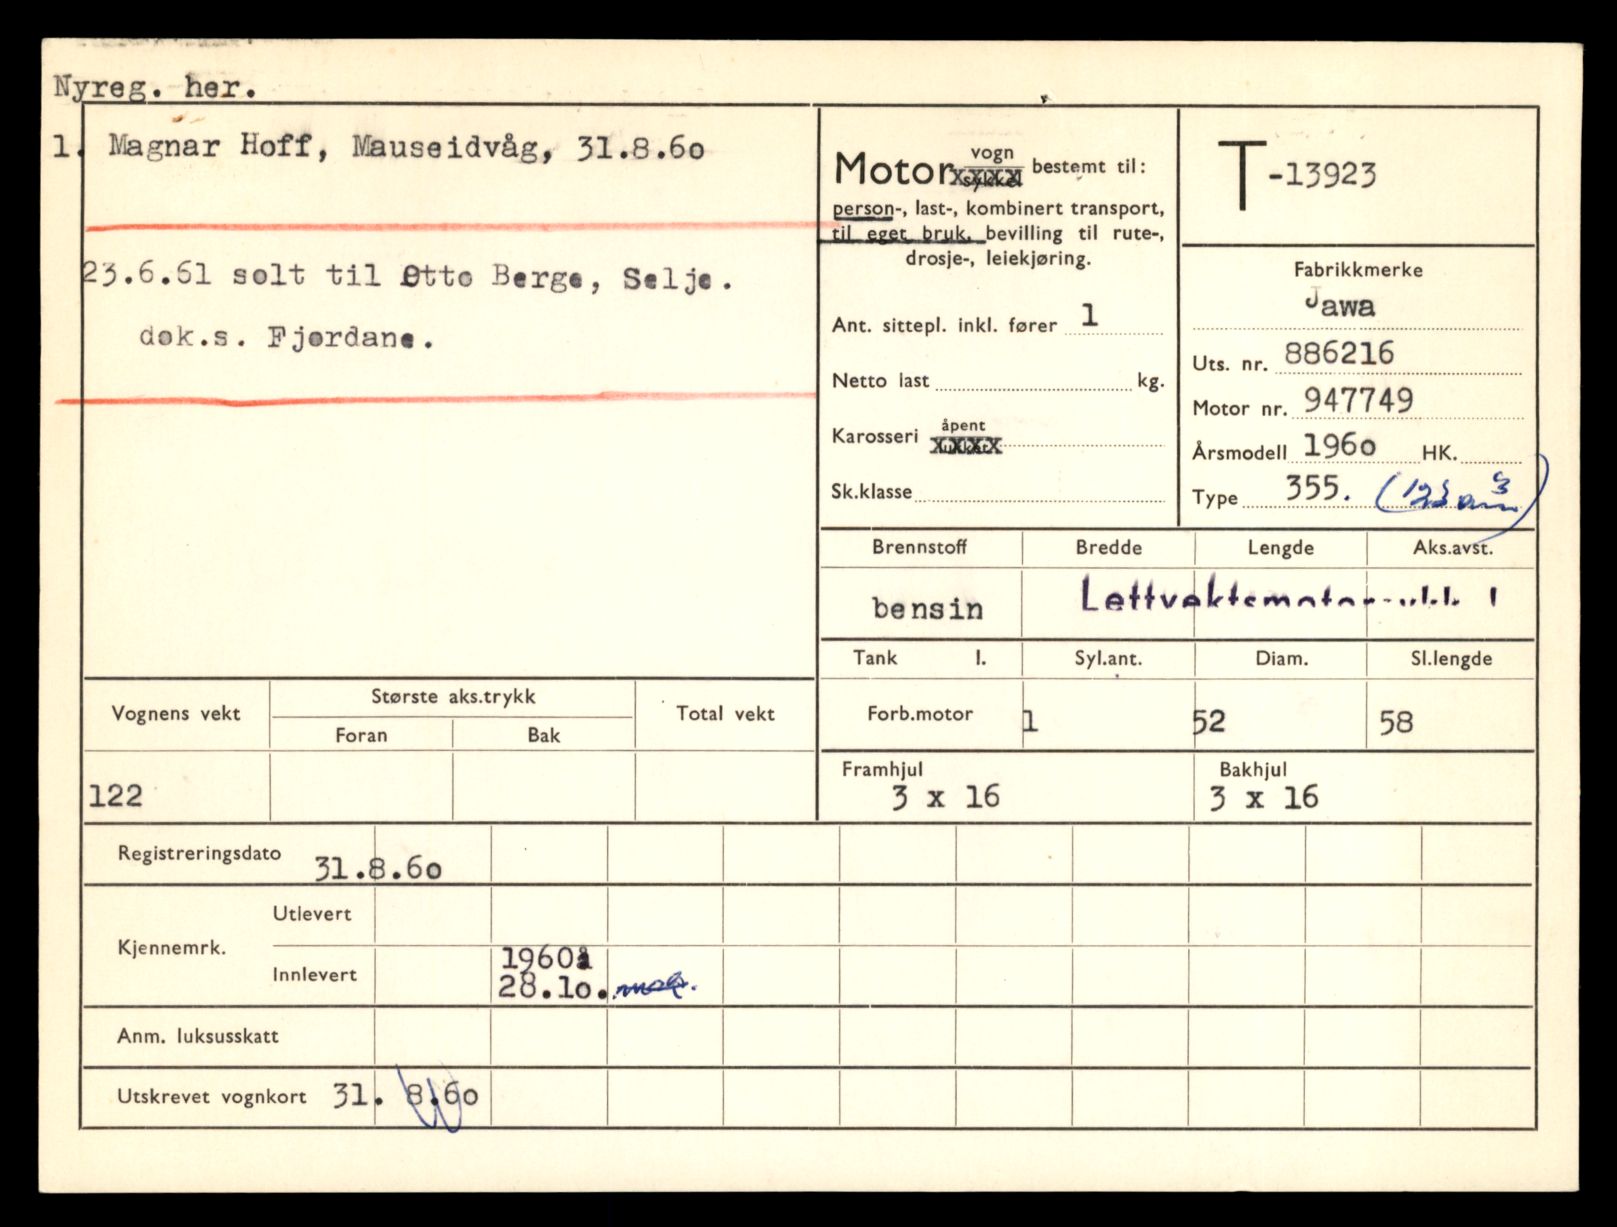 Nyreg. her.
1. Magnar Hoff, Mauseidvåg, 31.8.60
23.6.61 solt til Otto Berge, Selje.
dok.s. Fjordane.
Motor vogn bestemt til:
person-, last-, kombinert transport,
til eget bruk, bevilling til rute-,
drosje-, leiekjøring.
Ant. sittepl. inkl. fører 1
Netto last kg.
Karosseri åpent
xxxx
Sk.klasse
T-13923
Fabrikkmerke
Jawa
Uts. nr. 886216
Motor nr. 947749
Årsmodell 1960 HK.
Type 355.
Brennstoff Bredde Lengde Aks.avst.
bensin
Tank l. Syl.ant. Diam. Sl.lengde
Forb.motor 1 52 58
Framhjul Bakhjul
3 x 16 3 x 16
Vognens vekt Største aks.trykk Total vekt
Foran Bak
122
Registreringsdato 31.8.60
Kjennemrk. Utlevert
Innlevert 1960å
28.10.
Anm. luksusskatt
Utskrevet vognkort 31. 8.60